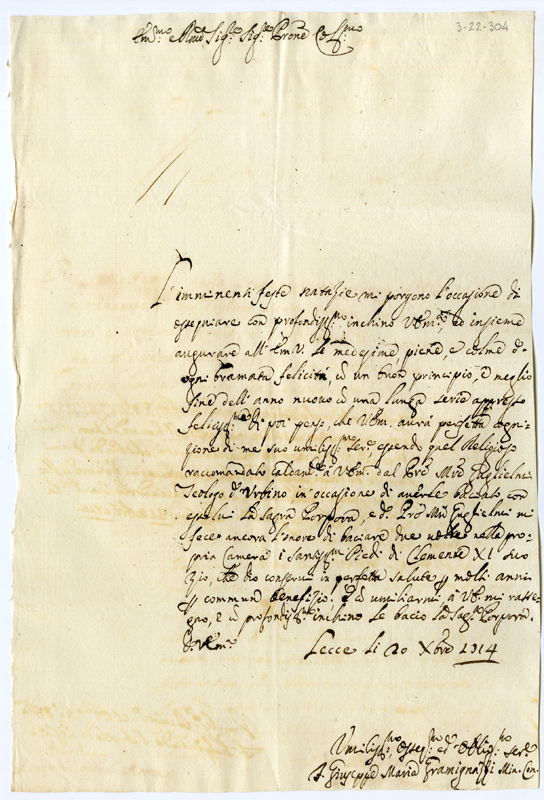 3-22-304
Em.mo e Rmo Sig.re Sig.re Prone Col.mo
L'imminenti feste natalizie mi porgono l'occasione di
ossequiare con profondiss.mo inchino V. Em.a ed insieme
augurare all'Em.V. le medesime piene, e colme d'
ogni bramata felicità, d un buon principio, e meglio
fine dell'anno nuovo d una lunga serie appresso
feliciss.me Di poi penso, che V. Em. aurà perfetta cogni-
zione di me suo umiliss.mo Ser.e essendo quel Religioso
raccomandato a V. Em.a dal Pre Mro Guglielmi
Teologo d'Urbino in occasione di auerle baciato, con
esso lui la Sagra Porpora, e d.o Pre Mro Guglielmi mi
fece ancora l'onore di baciare due volte nella pro-
pria Camera i Santiss.mi Piedi di Clemente XI suo
Zio, che Dio conservi in perfetta salute p molti anni
p commun benefizio, e d umiliarmi a V. Em. mi rasse-
gno, e d profondiss.mo inchino le bacio la Sag.a Porpora.
D. V. Em.a
Lecce li 20 Xbre 1714
Umiliss.mo, osseq.mo ed obblig.mo Ser.e
F. Giuseppe Maria Gramignazzi Min. Con.